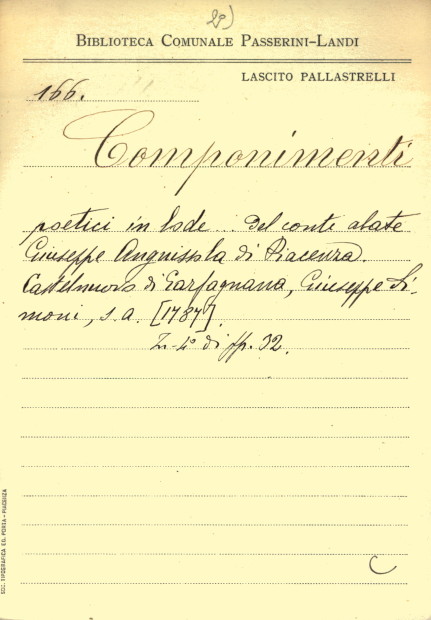 2°)
BIBLIOTECA COMUNALE PASSERINI-LANDI
LASCITO PALLASTRELLI
166.
Componimenti
poetici in lode... del conte abate
Giuseppe Anguissola di Piacenza.
Castelnuovo di Garfagnana, Giuseppe Si-
moni, s.a. [1787].
In-4° di pp. 32.
C
SOC. TIPOGRAFICA ED. PORTA - PIACENZA